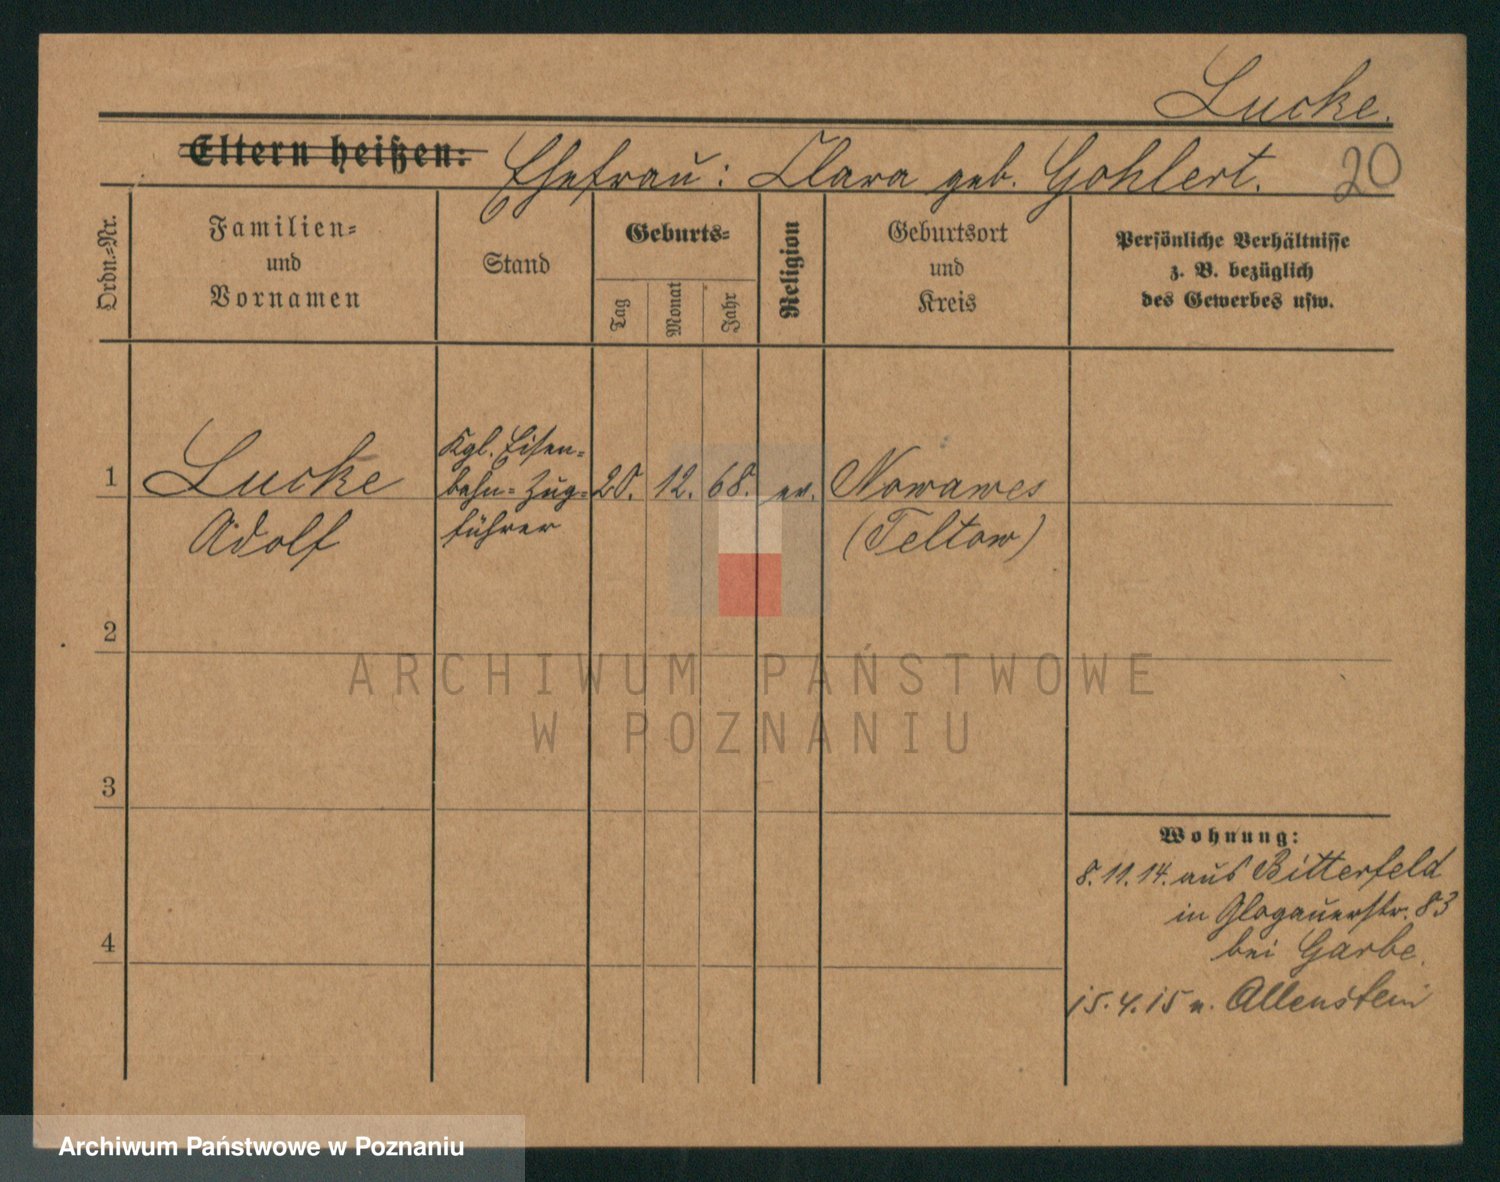 Lucke.
Eltern heißen: Ehefrau: Clara geb. Gohlert. 20
Ordn.-Nr.
Familien-
und
Vornamen
Stand
Geburts-
Tag
Monat
Jahr
Religion
Geburtsort
und
Kreis
Persönliche Verhältnisse
z. B. bezüglich
des Gewerbes usw.
1
Lucke
Adolf
Kgl. Eisen-
bahn-Zug-
führer
20. 12. 68. ev.
Nowawes
(Teltow)
2
3
4
Wohnung:
8.11.14. aus Bitterfeld
in Glogauerstr. 83
bei Garbe.
15.4.15 n. Allenstein
ARCHIWUM PAŃSTWOWE
W POZNANIU
Archiwum Państwowe w Poznaniu